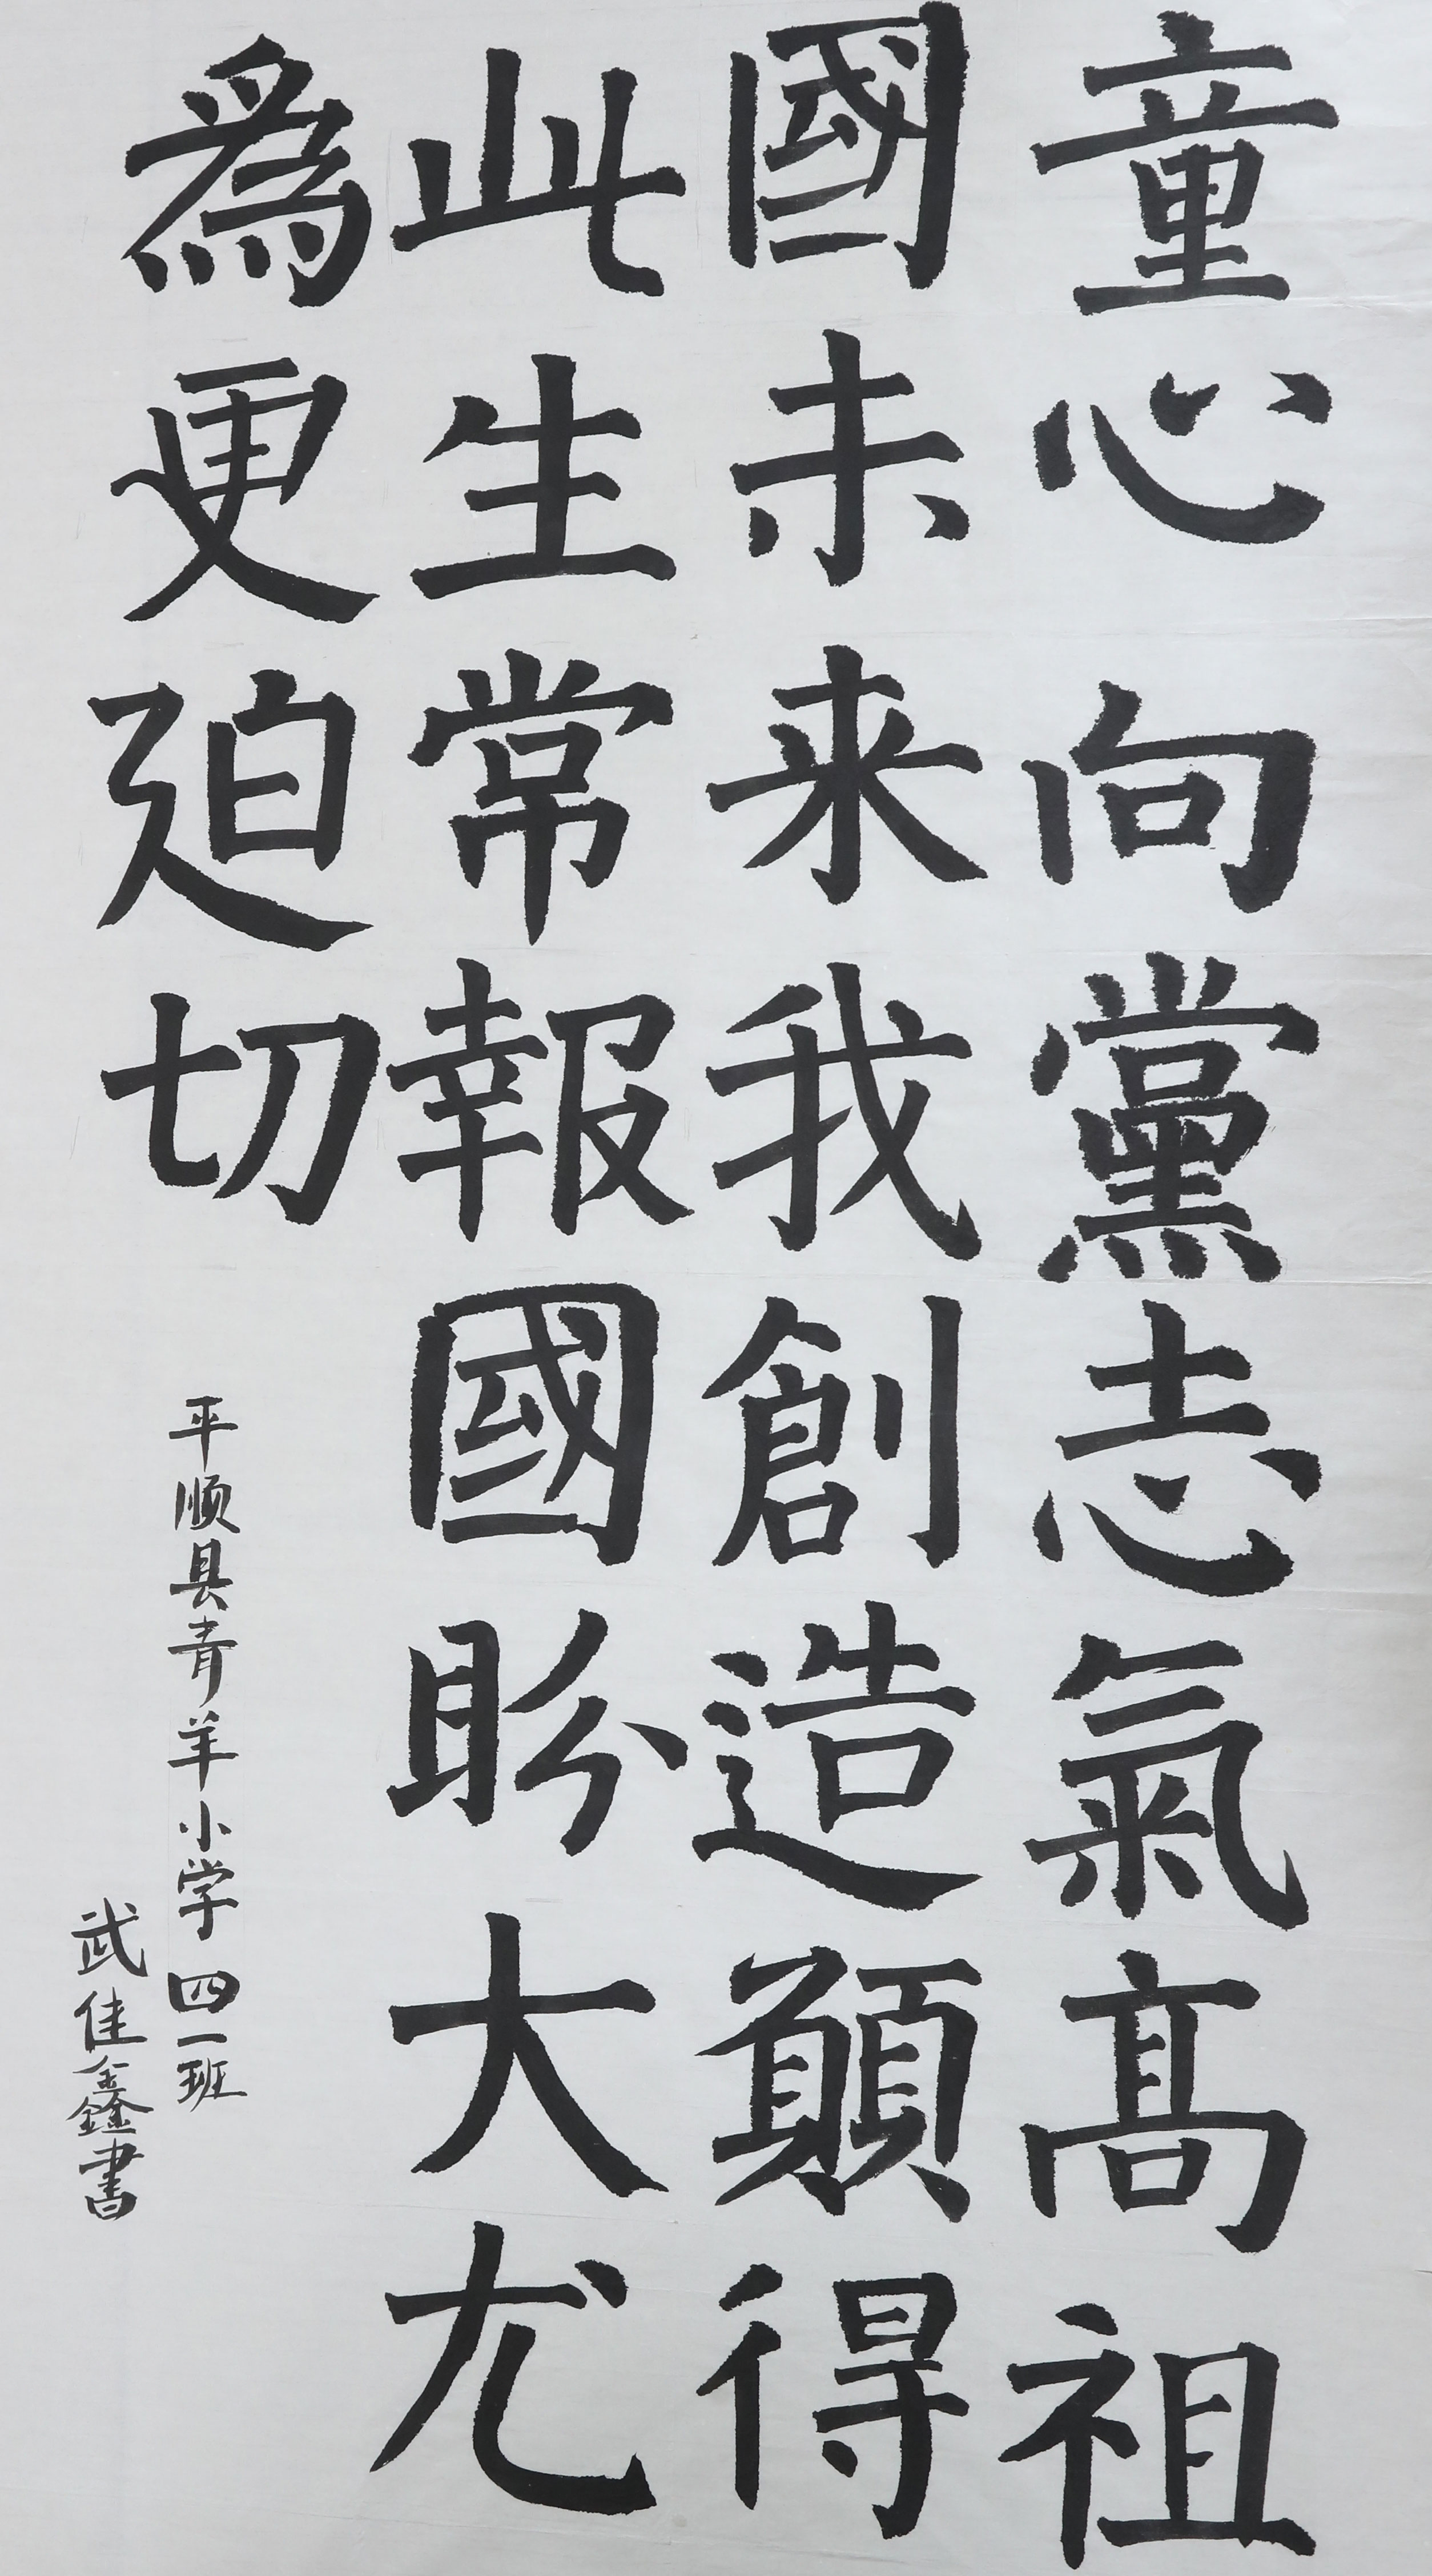 童心向黨志氣高祖
國未来我創造願得
此生常報國盼大尤
為更廹切
平顺县青羊小学四一班
武佳鑫書